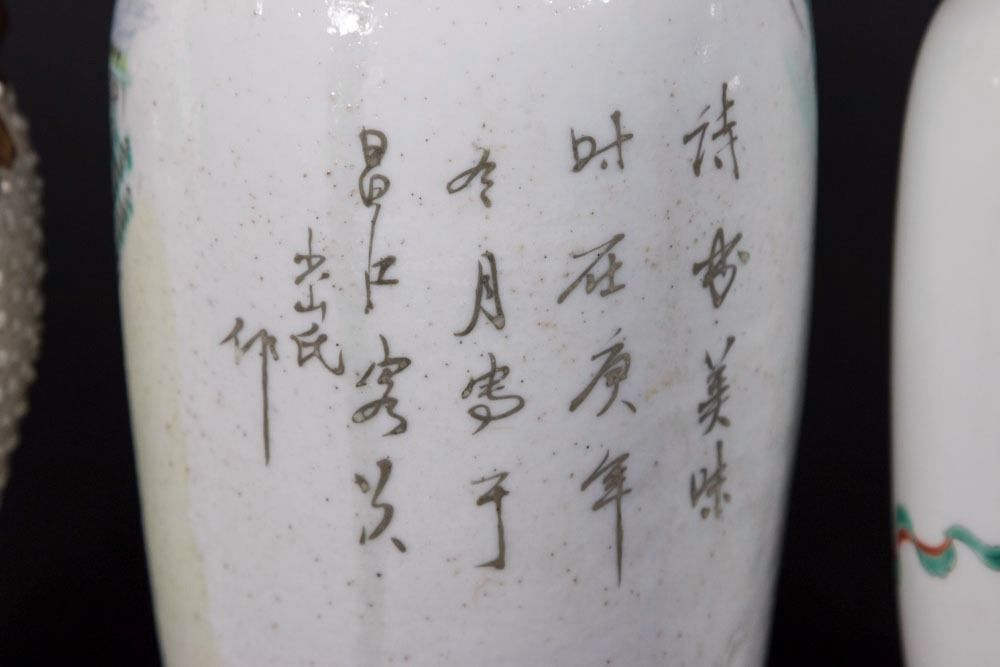 诗书美味
时在庚年
冬月写于
昌江客次
出山氏
作